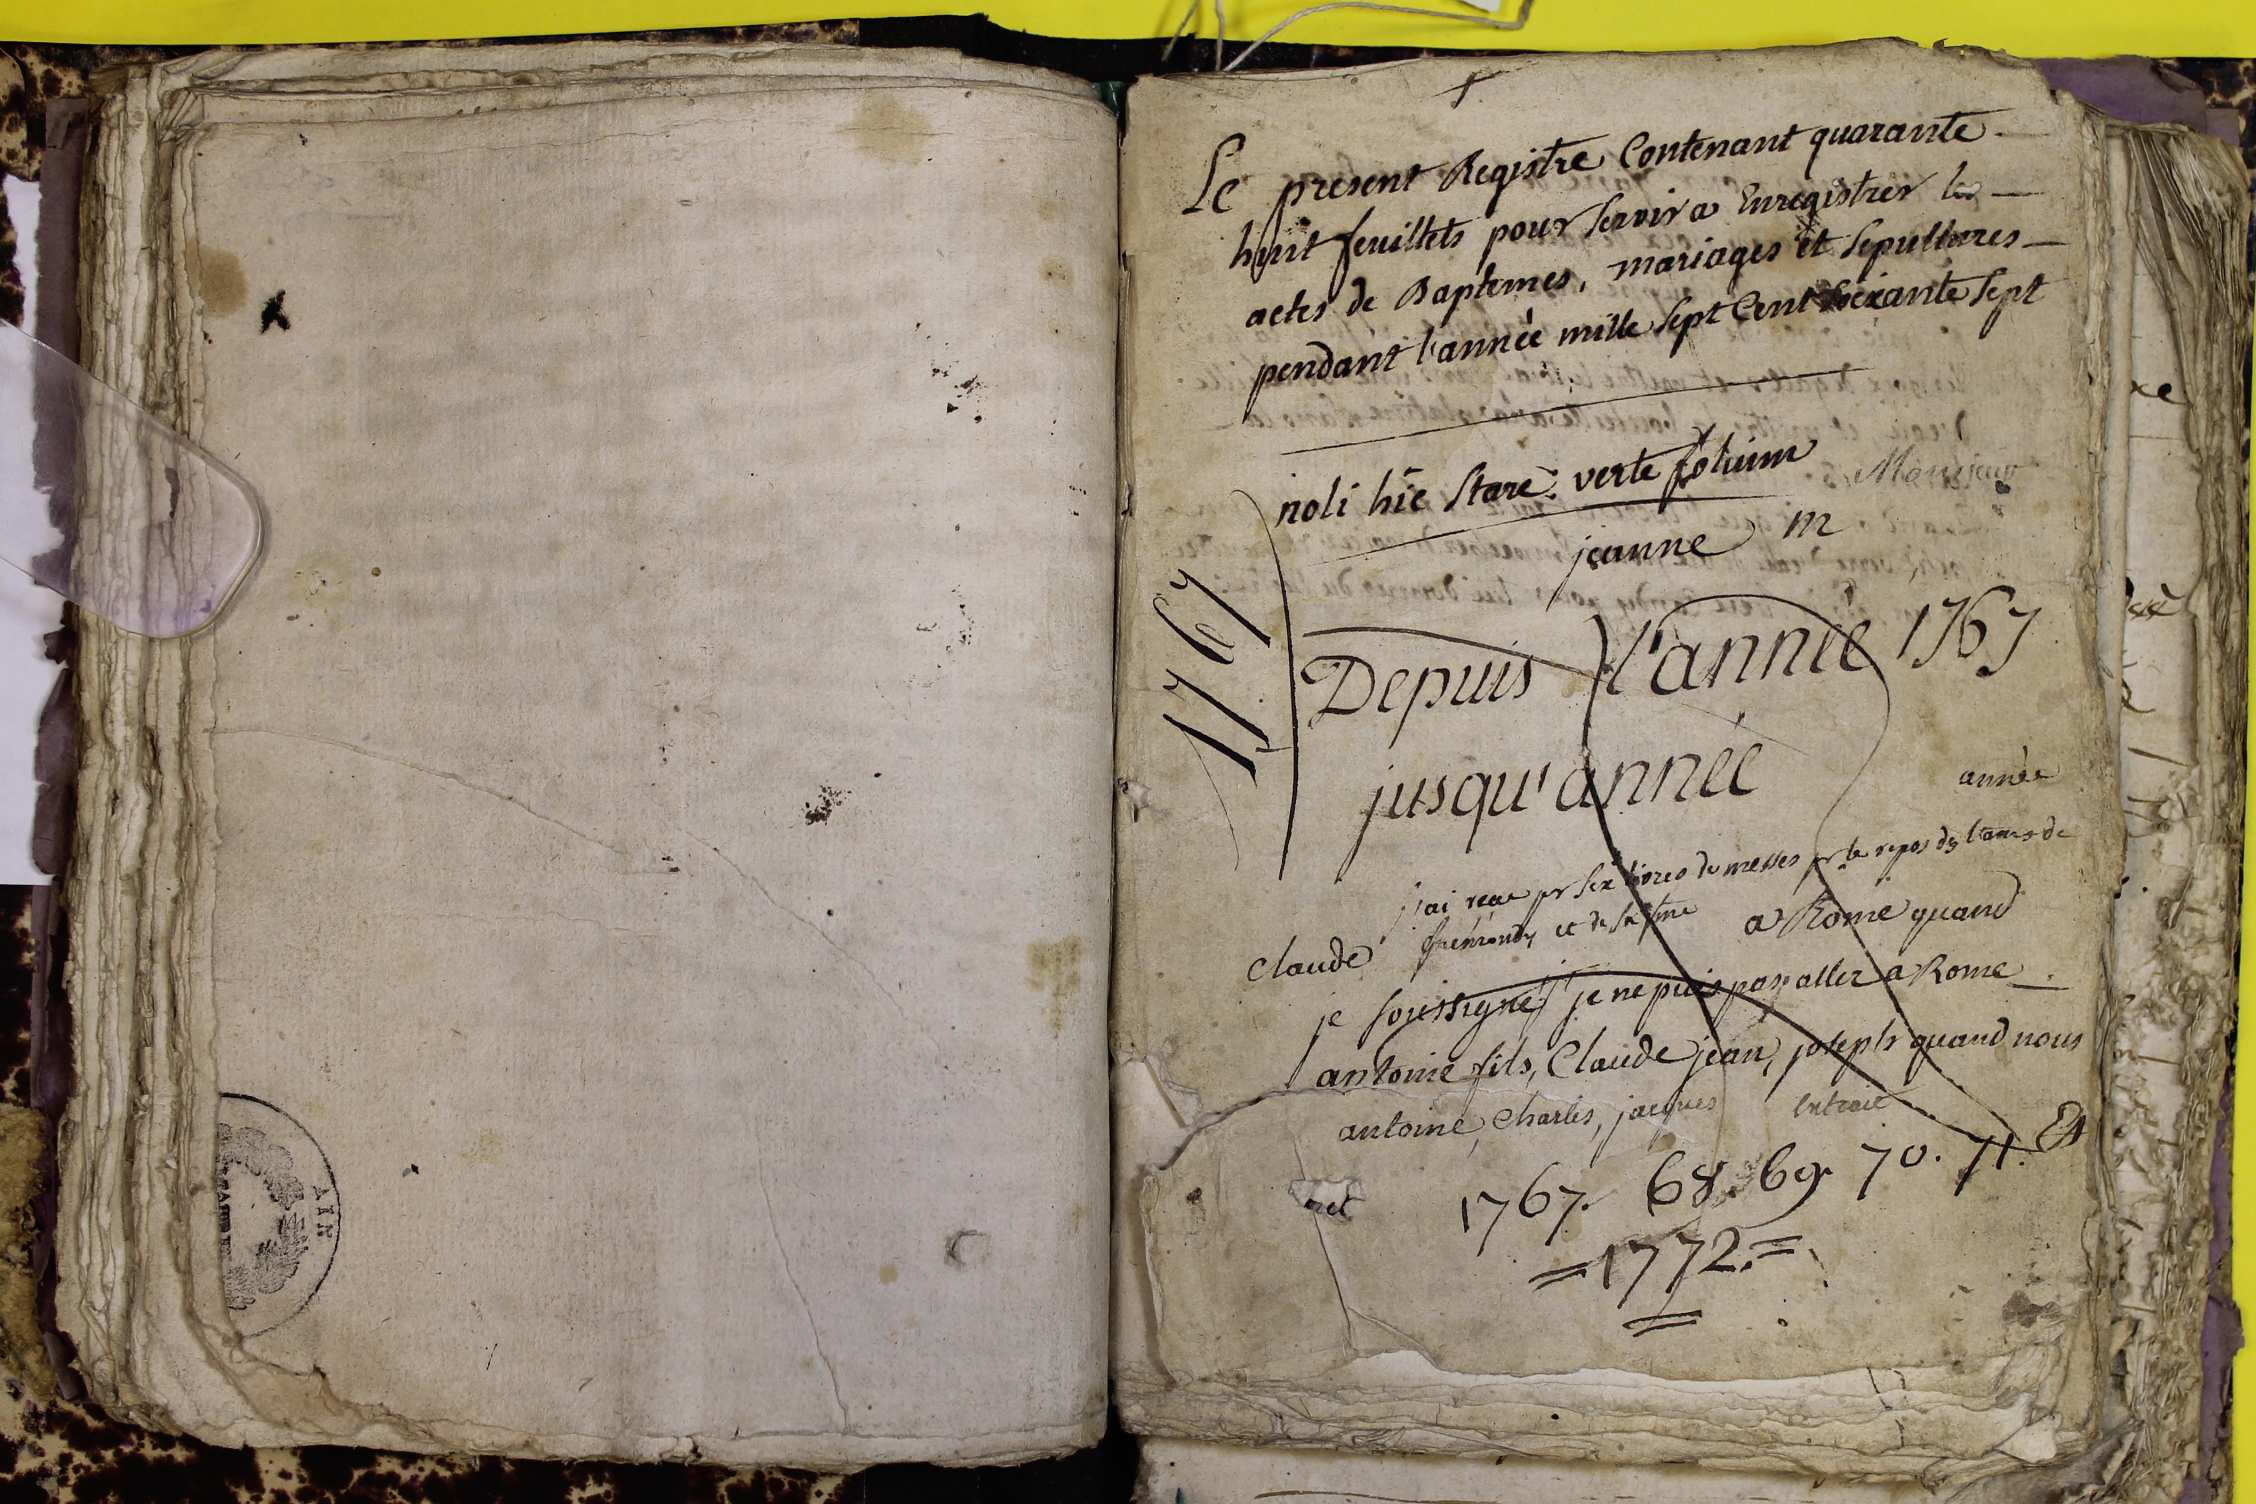 Le present Registre Contenant quarante
huit feuillets pour servir a Enregistrer les
actes de Baptemes, mariages et sepultures
pendant l'année mille sept Cent soixante sept
noli hic stare: verte folium
Monsieur
jeanne m
1767
Depuis l'année 1767
jusqu'année
année
j'ai recue pr six livres de messes pr le repos de l'ames de
Claude et de sa fme
a Rome quand
je soussigné je ne puis pas aller a Rome
antoine fils, Claude jean, joseph quand nous
antoine, Charles, jacques Extrait
1767. 68. 69. 70. 71. Et
= 1772. =
AIN